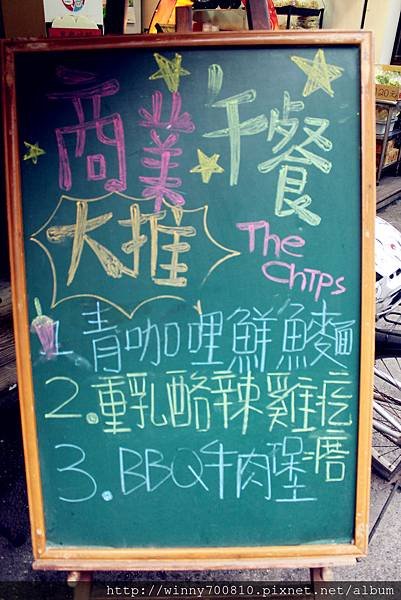 商業午餐
大推 The Chips
1. 青咖哩鮮魚麵
2. 重乳酪辣雞疙瘩
3. BBQ牛肉堡
20元
http://winny700810.pixnet.net/album